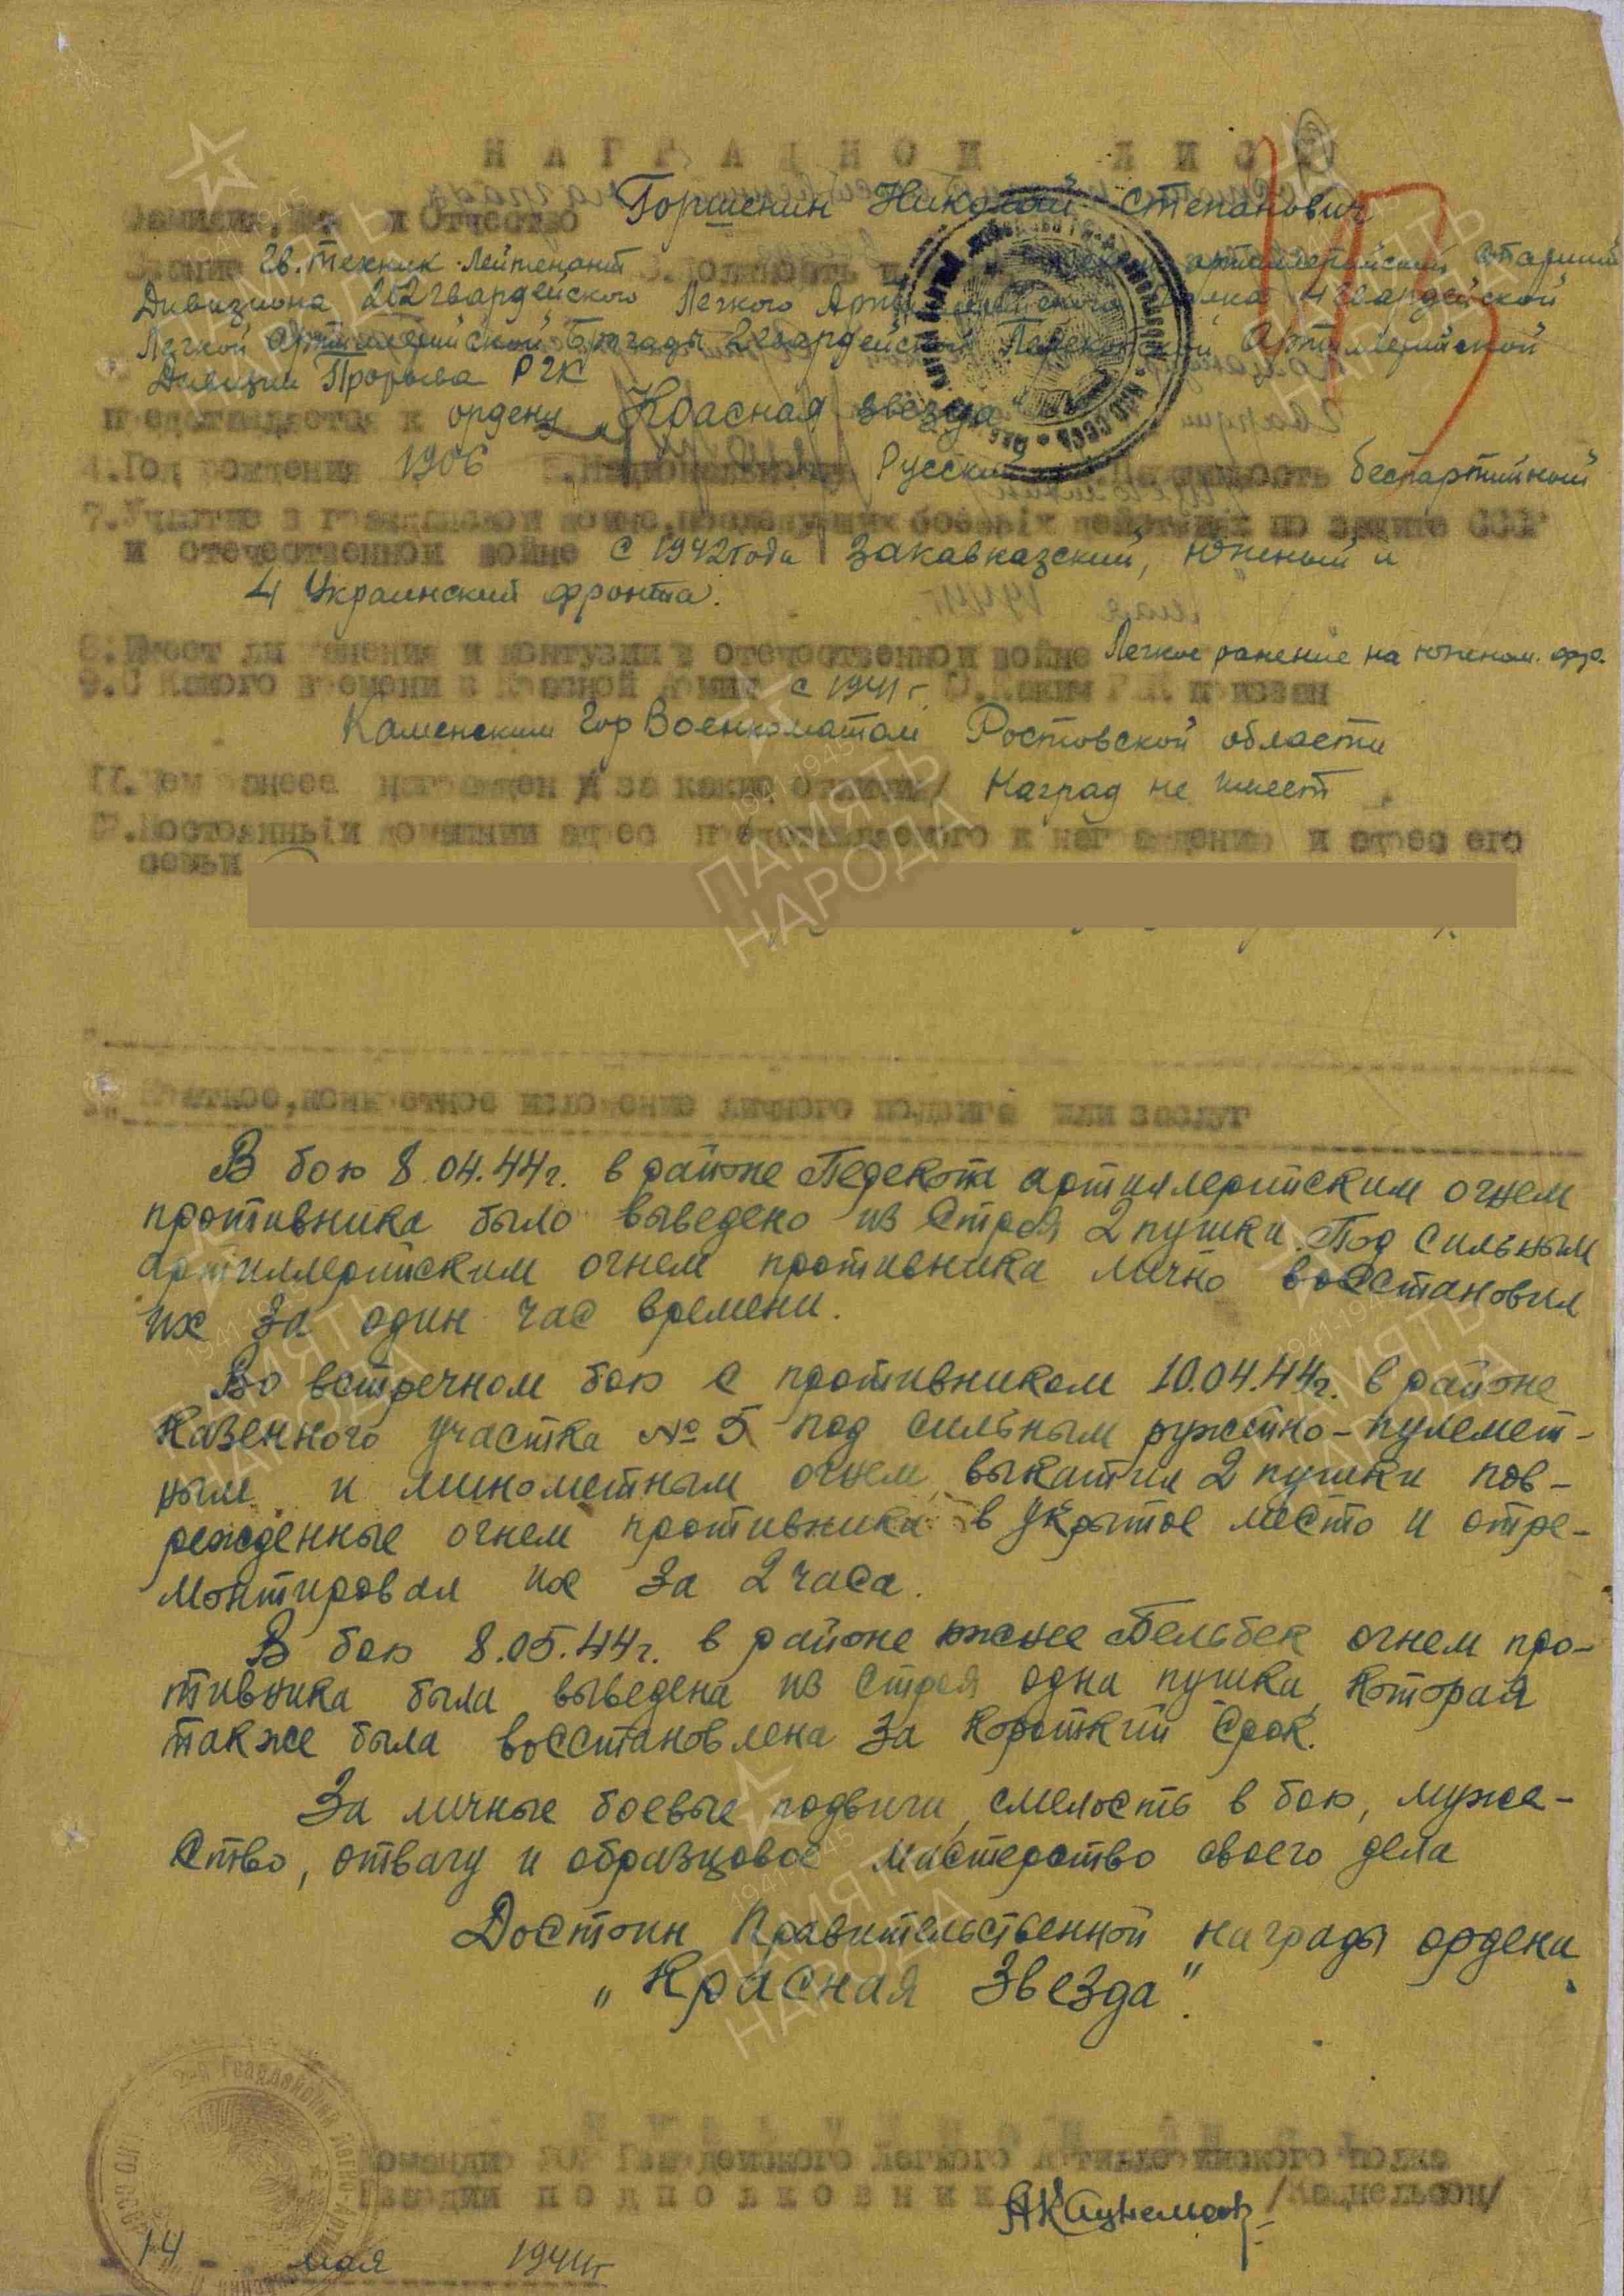 НАГРАДНОЙ ЛИСТ
Фамилия, Имя и Отчество Горшенин Николай Степанович
Звание Гв. техник-лейтенант артиллерийский старший
Дивизиона 202 гвардейского Легкого Артиллерийского полка 4 гвардейской
Легкой артиллерийской Бригады 2 гвардейской Перекопской Артиллерийской
Дивизии Прорыва РГК
представляется к ордену „Красная звезда"
4. Год рождения 1906 5. Национальность Русский 6. Партийность беспартийный
7. Участие в гражданской войне, последующих боевых действиях по защите СССР
и отечественной войне с 1942 года Закавказский, Южный и
4 Украинский фронта.
8. Имеет ли ранения и контузии в отечественной войне Легкое ранение на южном. фр.
9. С какого времени в Красной Армии с 1941 г. 10. Каким Р.В.К. призван
Каменским Гор Военкоматом Ростовской области
11. Чем ранее награжден /за какие отличия/ Наград не имеет
12. Постоянный домашний адрес представляемого к награждению и адрес его
семьи
Краткое, конкретное изложение личного подвига или заслуг
В бою 8.04.44г. в районе Перекопа артиллерийским огнем
противника было выведено из строя 2 пушки. Под сильным
артиллерийским огнем противника лично восстановил
их за один час времени.
Во встречном бою с противником 10.04.44г. в районе
Казенного участка № 5 под сильным ружейно-пулемет-
ным и минометным огнем, выкатил 2 пушки пов-
режденные огнем противника в укрытое место и отре-
монтировал их за 2 часа.
В бою 8.05.44г. в районе южнее Бельбек огнем про-
тивника была выведена из строя одна пушка, которая
также была восстановлена за короткий срок.
За личные боевые подвиги, смелость в бою, муже-
ство, отвагу и образцовое мастерство своего дела
Достоин Правительственной награды ордена
„Красная Звезда".
Командир 202 Гвардейского Легкого Артиллерийского полка
Гвардии подполковник
14 мая 1944г
ПАМЯТЬ НАРОДА
1941-1945